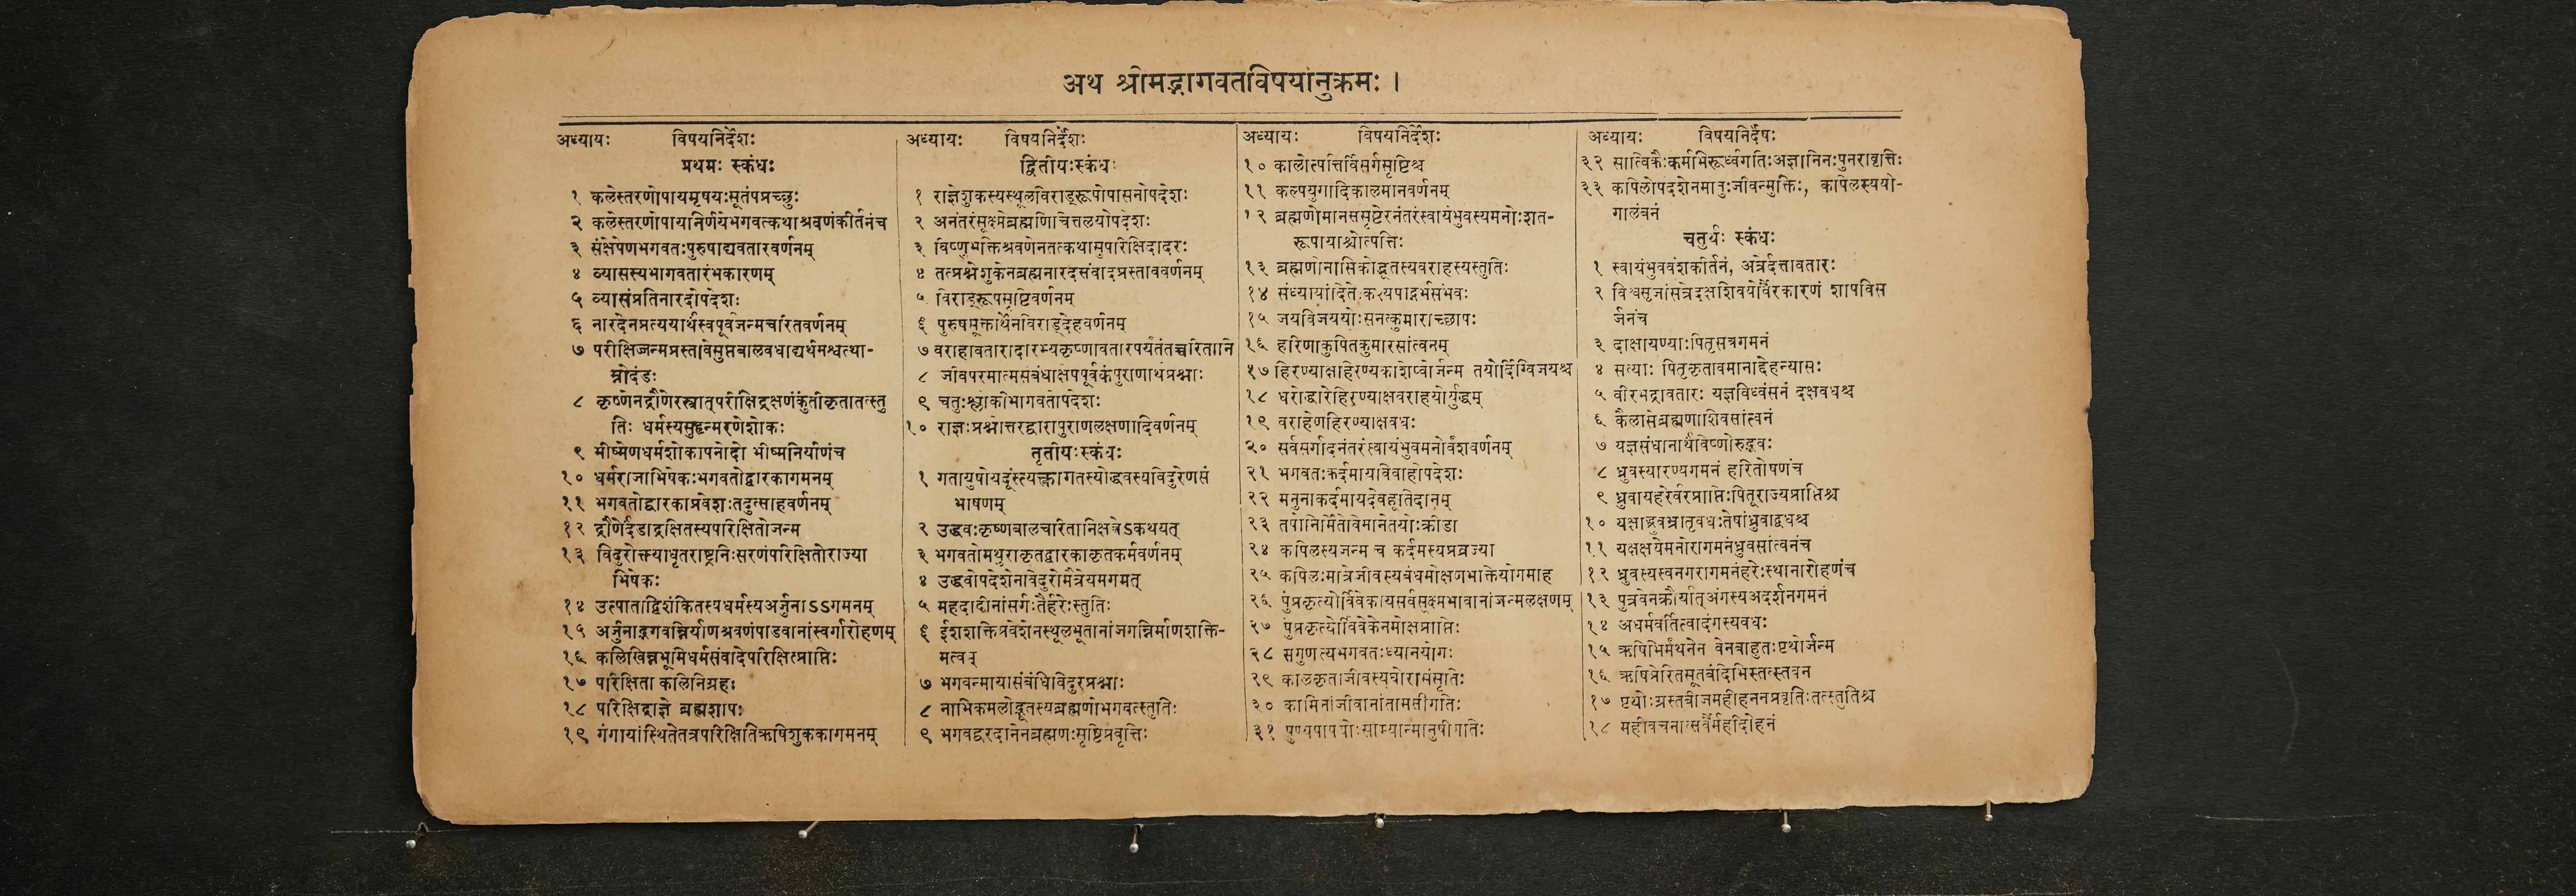 अथ श्रीमद्भागवतविषयानुक्रमः ।
अध्यायः विषयनिर्देशः
प्रथमः स्कंधः
१ कलेस्तरणोपायमृषयःसूतंपप्रच्छुः
२ कलेस्तरणोपायनिर्णयेभगवत्कथाश्रवणंकीर्तनंच
३ संक्षेपेणभगवतःपुरुषाद्यवतारवर्णनम्
४ व्यासस्यभागवतारंभकारणम्
५ व्यासंप्रतिनारदोपदेशः
६ नारदेनप्रत्ययार्थंस्वपूर्वजन्मचरितवर्णनम्
७ परीक्षिज्जन्मप्रस्तावेसुप्तबालवधाद्यर्थमश्वत्था-
म्नोदंडः
८ कृष्णेनद्रौणेरस्त्रात्परीक्षिद्रक्षणंकुंतीकृतातत्स्तु
तिः धर्मस्यसुहृन्मरणेशोकः
९ भीष्मेणधर्मशोकापनोदो भीष्मनिर्याणंच
१० धर्मराजाभिषेकःभगवतोद्वारकागमनम्
११ भगवतोद्वारकाप्रवेशःतदुत्साहवर्णनम्
१२ द्रौणेर्दंडाद्रक्षितस्यपरिक्षितोजन्म
१३ विदुरोक्त्याधृतराष्ट्रनिःसरणंपरिक्षितोराज्या
भिषेकः
१४ उत्पाताद्विशंकितस्यधर्मस्यअर्जुनाऽऽगमनम्
१५ अर्जुनाद्भगवन्निर्याणश्रवणंपांडवानांस्वर्गारोहणम्
१६ कलिखिन्नभूमिधर्मसंवादेपरिक्षित्प्राप्तिः
१७ परिक्षिता कलिनिग्रहः
१८ परिक्षिद्राज्ञे ब्रह्मशापः
१९ गंगायांस्थितेतत्रपरिक्षितिऋषिशुककागमनम्
अध्यायः विषयनिर्देशः
द्वितीयःस्कंधः
१ राज्ञेशुकस्यस्थूलविराड्रूपोपासनोपदेशः
२ अनंतरंसूक्ष्मेब्रह्मणिचित्तलयोपदेशः
३ विष्णुभक्तिश्रवणेनतत्कथासुपरिक्षिदादरः
४ तत्प्रश्नेशुकेनब्रह्मनारदसंवादप्रस्ताववर्णनम्
५ विराड्रूपसृष्टिवर्णनम्
६ पुरुषसूक्तार्थेनविराड्देहवर्णनम्
७ वराहावतारादारभ्यकृष्णावतारपर्यंतंतच्चरितानि
८ जीवपरमात्मसंबंधाक्षेपपूर्वकंपुराणार्थप्रश्नाः
९ चतुःश्लोकीभागवतोपदेशः
१० राज्ञःप्रश्नोत्तरद्वारापुराणलक्षणादिवर्णनम्
तृतीयःस्कंधः
१ गतायुषोयदूंस्त्यक्त्वागतस्योद्धवस्यविदुरेणसं
भाषणम्
२ उद्धवःकृष्णबालचरितानिक्षत्रेऽकथयत्
३ भगवतोमथुराकृतद्वारकाकृतकर्मवर्णनम्
४ उद्धवोपदेशेनविदुरोमैत्रेयमगमत्
५ महदादीनांसर्गःतैर्हरेःस्तुतिः
६ ईशशक्तिप्रवेशेनस्थूलभूतानांजगन्निर्माणशक्ति-
मत्वम्
७ भगवन्मायासंबंधिविदुरप्रश्नाः
८ नाभिकमलोद्भूतस्यब्रह्मणोभगवत्स्तुतिः
९ भगवद्वरदानेनब्रह्मणःसृष्टिप्रवृत्तिः
अध्यायः विषयनिर्देशः
१० कालोत्पत्तिर्विसर्गसृष्टिश्च
११ कल्पयुगादिकालमानवर्णनम्
१२ ब्रह्मणोमानससृष्टेरनंतरंस्वायंभुवस्यमनोःशत-
रूपायाश्चोत्पत्तिः
१३ ब्रह्मणोनासिकोद्भूतस्यवराहस्यस्तुतिः
१४ संध्यायांदितेःकश्यपाद्गर्भसंभवः
१५ जयविजययोःसनत्कुमाराच्छापः
१६ हरिणाकुपितकुमारसांत्वनम्
१७ हिरण्याक्षहिरण्यकशिप्वोर्जन्म तयोर्दिग्विजयश्च
१८ धरोद्धारेहिरण्याक्षवराहयोर्युद्धम्
१९ वराहेणहिरण्याक्षवधः
२० सर्वसर्गादनंतरंस्वायंभुवमनोर्वंशवर्णनम्
२१ भगवतःकर्दमायविवाहोपदेशः
२२ मनुनाकर्दमायदेवहूतिदानम्
२३ तपोनिर्मितेविमानेतयोःक्रीडा
२४ कपिलस्यजन्म च कर्दमस्यप्रव्रज्या
२५ कपिलःमात्रेजीवस्यबंधमोक्षणभक्तियोगमाह
२६ पुंप्रकृत्योर्विवेकायसर्वसूक्ष्मभावानांजन्मलक्षणम्
२७ पुंप्रकृत्योर्विवेकेनमोक्षप्राप्तिः
२८ सगुणस्यभगवतःध्यानयोगः
२९ कालकृताजीवस्यघोरासंसृतिः
३० कामिनांजीवानांतामसीगतिः
३१ पुण्यपापयोःसाम्यान्मानुषीगतिः
अध्यायः विषयनिर्देषः
३२ सात्विकैःकर्मभिरूर्ध्वगतिःअज्ञानिनःपुनरावृत्तिः
३३ कपिलोपदेशेनमातुःजीवन्मुक्तिः, कपिलस्ययो-
गालंबनं
चतुर्थः स्कंधः
१ स्वायंभुववंशकीर्तनं, अत्रेर्दत्तावतारः
२ विश्वसृजांसत्रेदक्षशिवयोर्वैरकारणं शापविस
र्जनंच
३ दाक्षायण्याःपितृसत्रगमनं
४ सत्याः पितृकृतावमानाद्देहन्यासः
५ वीरभद्रावतारः यज्ञविध्वंसनं दक्षवधश्च
६ कैलासेब्रह्मणाशिवसांत्वनं
७ यज्ञसंधानार्थंविष्णोरुद्भवः
८ ध्रुवस्यारण्यगमनं हरितोषणंच
९ ध्रुवायहरेर्वरप्राप्तिःपितूराज्यप्राप्तिश्च
१० यक्षाद्ध्रुवभ्रातृवधःतेषांध्रुवाद्वधश्च
११ यक्षक्षयेमनोरागमनंध्रुवसांत्वनंच
१२ ध्रुवस्यस्वनगरागमनंहरेःस्थानारोहणंच
१३ पुत्रवेनक्रौर्यात्अंगस्यअदर्शनगमनं
१४ अधर्मवर्तित्वादंगस्यवधः
१५ ऋषिभिर्मंथनेन वेनबाहुतःपृथोर्जन्म
१६ ऋषिप्रेरितसूतबंदिभिस्तत्स्तवन
१७ पृथोःग्रस्तबीजमहीहननप्रवृतिःतत्स्तुतिश्च
१८ महीवचनात्सर्वैर्महीदोहनं